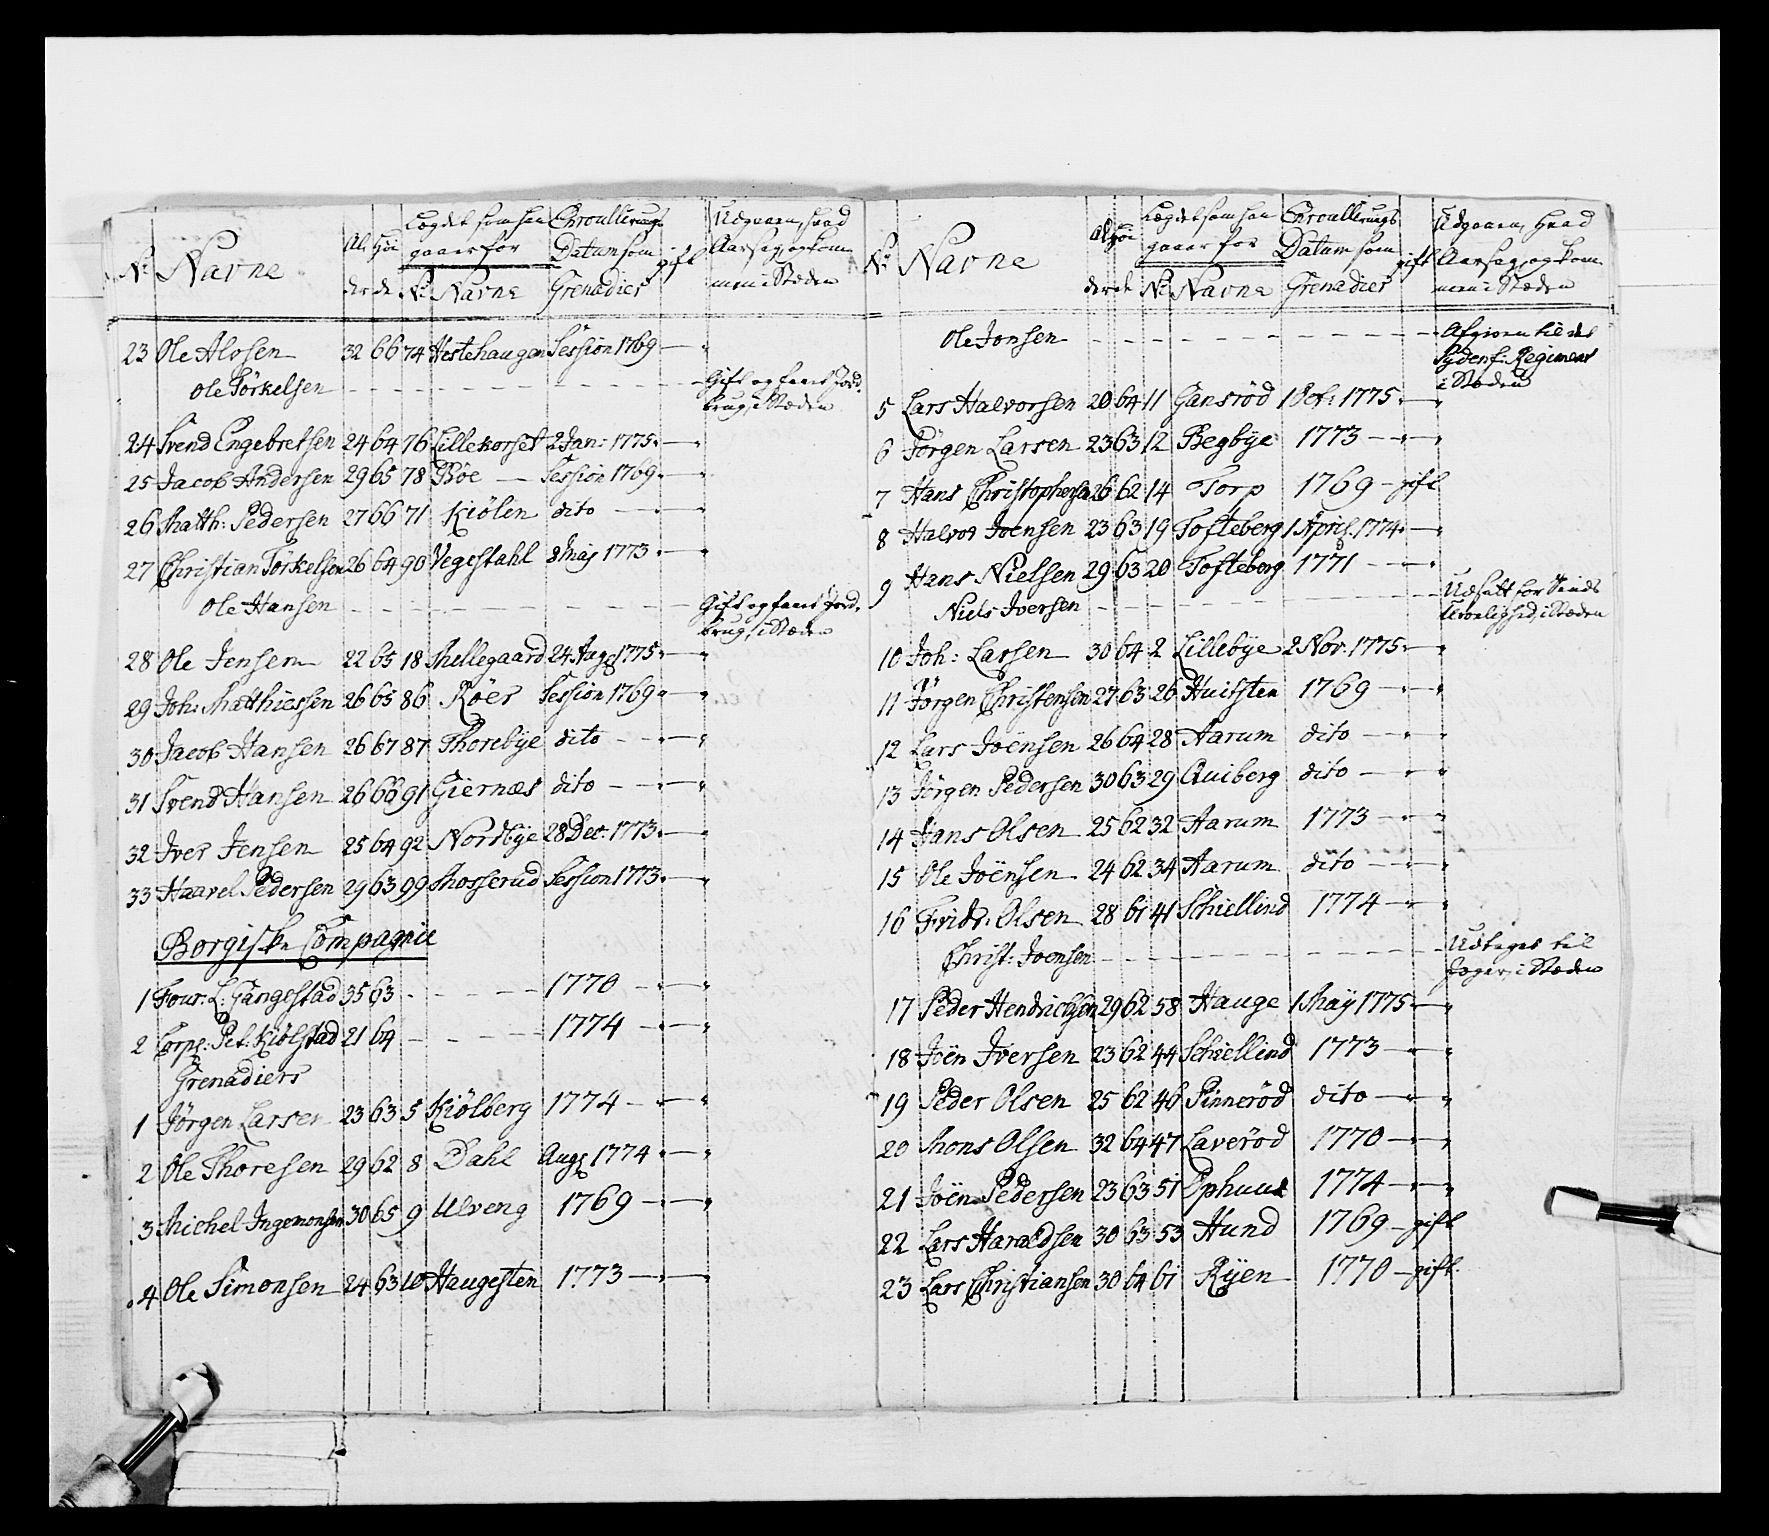 No Navne Al, der Høi de Lægdet som han gaaer for No Navne Enroullerings Datum som Grenadier gift Udgaaen, hvad Aarsag, og kommen i Stæden
23 Ole Alosen 32 66 74 Hestehaugen Session 1769 — "
Ole Törkelsen - - - - - - Gift og faaet Jord-
brug, i Stæden
24 Svend Engebretsen 24 64 76 Lillekorset 2 Jan: 1775. — "
25 Jacob Andersen 29 65 78 Böe — Session 1769. — "
26 Matth: Pedersen 27 66 71 Kiölen dito — — "
27 Christian Törkelsen 26 64 90 Vegestahl 8 Maj 1773. — "
Ole Hansen - - - - - - Gift og faaet Jord-
brug, i Stæden
28 Ole Jensen 22 65 18 Mellegaard 24 Aug 1775. — "
29 Joh: Matthiessen 26 65 86 Röer Session 1769 — "
30 Jacob Hansen 26 67 87 Thorebÿe dito — — "
31 Svend Hansen 26 66 91 Giernæs dito — — "
32 Iver Jensen 25 64 92 Nordbÿe 28 Dec: 1773. — "
33 Haavel Pedersen 29 63 99 Mosserud Session 1773. — "
Borgiske Compagnie
1 Four: L: Gangestad 35 63 - - - - 1770 — — "
2 Corpl: Pet: Kiölstad 21 64 - - - - 1774 — — "
Grenadiers
1 Jörgen Larsen 23 63 5 Kiölberg 1774 — — "
2 Ole Thoresen 29 62 8 Dahl Aug 1774 — "
3 Michel Ingemonsen 30 65 9 Ulveng 1769 — — "
4 Ole Simonsen 24 63 10 Haugesten 1773 — — "
No Navne Al, der Høi de Lægdet som han gaaer for No Navne Enroullerings Datum som Grenadier gift Udgaaen, hvad Aarsag, og kommen i Stæden
Ole Jonsen - - - - - - Afgiven til det
Sydenf: Regiment
i Stæden
5 Lars Halvorsen 20 64 11 Gansröd 1 Oct: 1775. — "
6 Jörgen Larsen 23 63 12 Begbÿe 1773 — — "
7 Hans Christophersen 26 62 14 Torp 1769 — gift
8 Halvor Joensen 23 63 19 Tofteberg 1 April 1774. — "
9 Hans Nielsen 29 63 20 Tofteberg 1771 — — "
Niels Iversen - - - - - - Udsatt for
i Stæden
10 Joh: Larsen 30 64 2 Lillebÿe 2 Nov: 1775. — "
11 Jörgen Christensen 27 63 26 Huitsten 1769 — — "
12 Lars Joënsen 26 64 28 Aarum dito — — "
13 Jörgen Pedersen 30 63 29 Quiberg dito — — "
14 Hans Olsen 25 62 32 Aarum 1773 — — "
15 Ole Joënsen 24 62 34 Aarum dito — — "
16 Fridr: Olsen 28 61 41 Schiellind 1774 — "
Christ: Joensen - - - - - - Udtaget til
i Stæden
17 Peder Hendrichsen 29 62 58 Hauge 1 Maÿ 1775 — "
18 Joën Iversen 23 62 44 Schiellind 1773 — "
19 Peder Olsen 25 62 46 Pinneröd dito — — "
20 Mons Olsen 32 64 47 Laveröd 1770 — — "
21 Joën Pedersen 23 63 51 Ophuus 1774 — — "
22 Lars Haraldsen 30 63 53 Hund 1769 — gift
23 Lars Christiansen 30 64 61 Rÿen 1770 — gift.